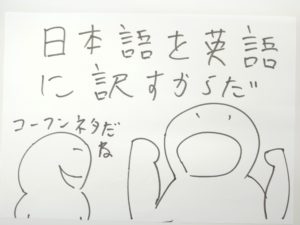 日本語を英語
に訳すからだ
コーフンネタだ
ね